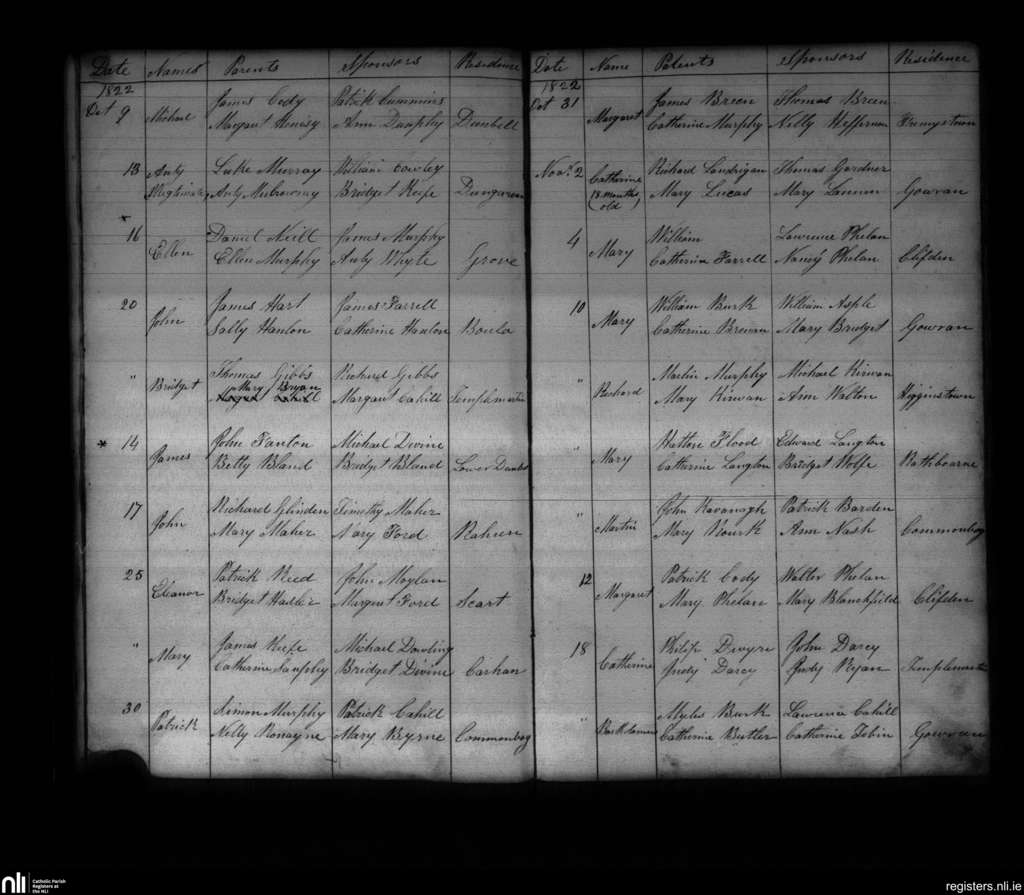 Date Names Parents Sponsors Residence
1822
Oct 9 Michael James Cody Patrick Cummins
Margaret Dunbell
Ann Dunphy
13 Anty Luke Murray William Cowley
Anty Bridget Keefe Dungarvan
16 Ellen Daniel Neill James Murphy
Ellen Murphy Anty Whyte Grove
20 John James Hart James Farrell
Sally Hanlon Catherine Hanlon
" Bridget Thomas Gibbs Richard Gibbs
Mary Bryan
Margaret Cahill Templemartin
* 14 James John Fanton Michael Divine
Betty Bland Bridget Bland Lower
17 John Richard Glinden Timothy Maher
Mary Maher Mary Ford
25 Eleanor Patrick Reed John Moylan
Bridget Margaret Ford Scart
" Mary James Keefe Michael Dowling
Catherine Dunphy Bridget Divine Carhan
30 Patrick Simon Murphy Patrick Cahill
Nelly Ronayne Mary Byrne Commonbog
Date Name Parents Sponsors Residence
1822
Oct 31 Margaret James Breen Thomas Breen
Catherine Murphy Nelly Heffernan
Novr. 2 Catherine Richard Londrigan Thomas Gardner
(18 months old) Mary Lucas Mary Gowran
4 Mary William Lawrence Phelan
Catherine Farrell Nancy Phelan Clifden
10 Mary William Burk William Asple
Catherine Brewan Mary Bridget Gowran
" Richard Martin Murphy Michael Kirwan
Mary Kirwan Ann Walton Higginstown
" Mary Flood Edward Langton
Catherine Langton Bridget Wolfe Rathbourne
" Martin John Kavanagh Patrick Barden
Mary Rourk Ann Nash Commonbog
12 Margaret Patrick Cody Walter Phelan
Mary Phelan Mary Blanchfield Clifden
18 Catherine Philip Dwyre John Darcy
Judy Darcy Judy Ryan Templemartin
" Myles Burk Lawrence Cahill
Catherine Butler Catherine Tobin Gowran
nli Catholic Parish
Registers at
the NLI
registers.nli.ie